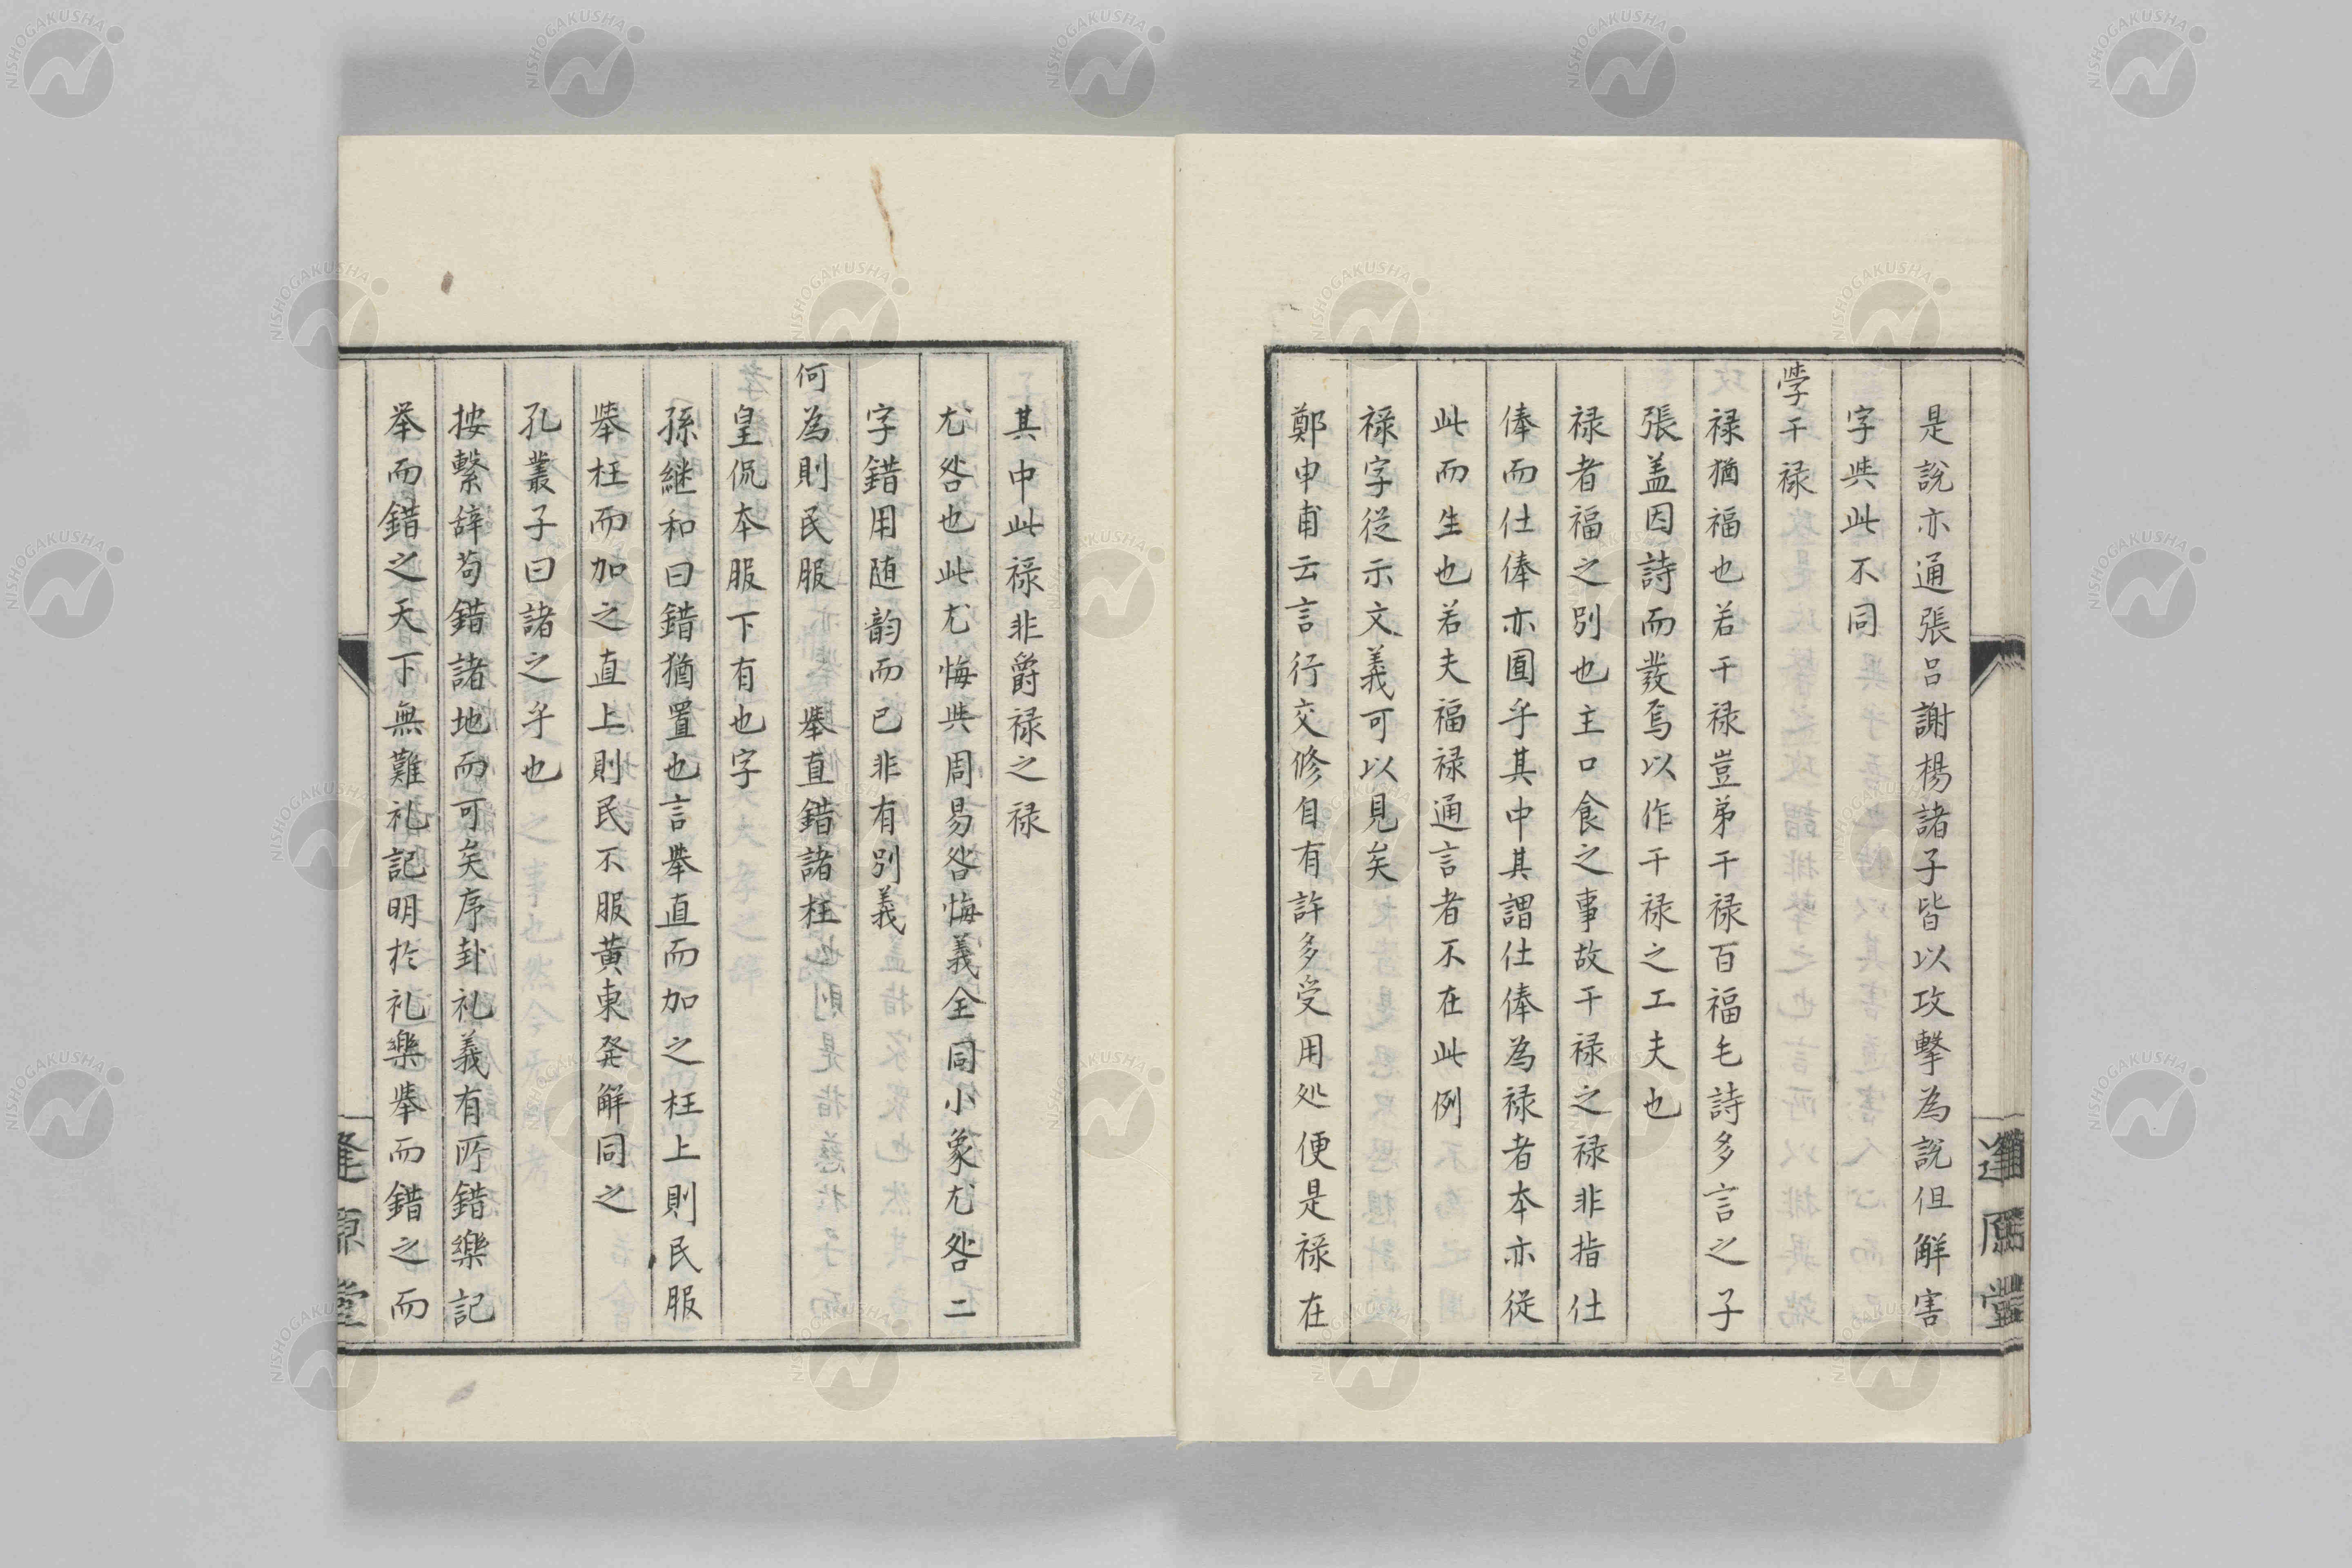 是説亦通張呂謝楊諸子皆以攻擊為説但解害
字與此不同
學干禄
禄猶福也若干禄豈弟干禄百福毛詩多言之子
張盖因詩而發焉以作干禄之工夫也
禄者福之別也主口食之事故干禄之禄非指仕
俸而仕俸亦囿乎其中其謂仕俸為禄者本亦従
此而生也若夫福禄通言者不在此例
禄字従示文義可以見矣
鄭申甫云言行交修自有許多受用処便是禄在
其中此禄非爵禄之禄
尤咎也此尤悔與周易咎悔義全同小象尤咎二
字錯用随韵而已非有別義
何為則民服 舉直錯諸枉
皇侃本服下有也字
孫継和曰錯猶置也言舉直而加之枉上則民服
舉枉而加之直上則民不服黄東発解同之
孔叢子曰諸之乎也
按繫辞苟錯諸地而可矣序卦礼義有所錯樂記
举而錯之天下無難礼記明於礼樂舉而錯之而
逢原堂
逢原堂
NISHOGAKUSHA